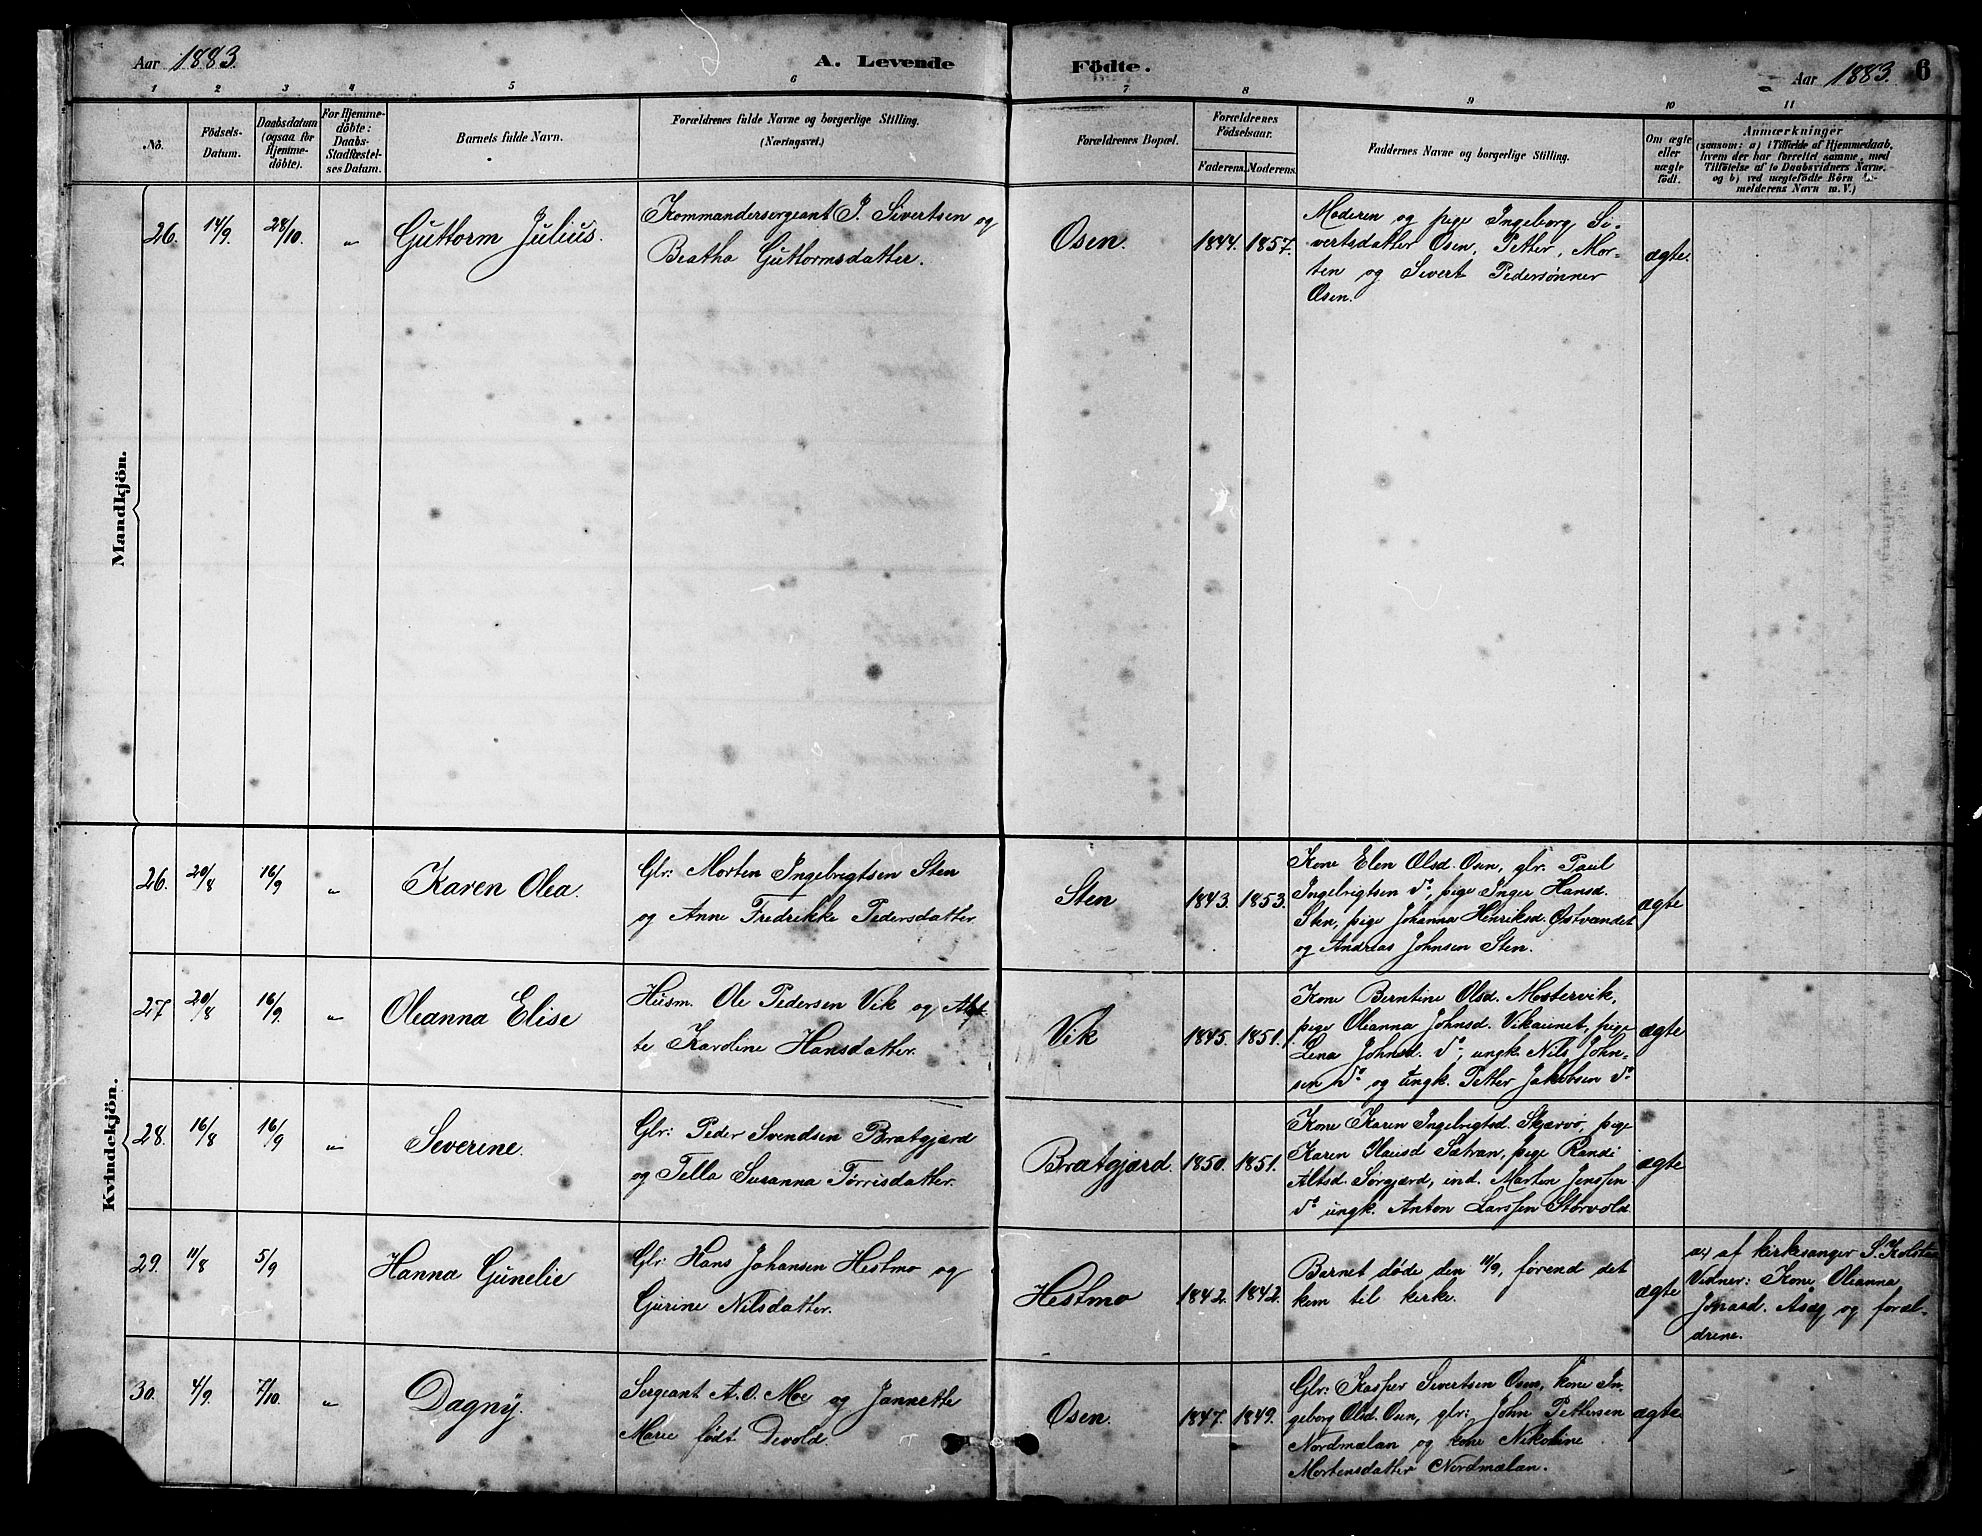 Aar 1883.
A. Levende Födte.
Aar 1883. 6
1 2 3 4 5 6 7 8 9 10 11
No.
Födsels-
Datum.
Daabsdatum
(ogsaa for
Hjemme-
döbte).
For Hjemme-
döbte:
Daabs-
Stadfæstel-
ses Datum.
Barnets fulde Navn.
Forældrenes fulde Navne og borgerlige Stilling.
(Næringsvei.)
Forældrenes Bopæl.
Forældrenes
Födselsaar.
Faderens. Moderens.
Faddernes Navne og borgerlige Stilling.
Om ægte
eller
uægte
födt.
Anmærkninger
(saasom: a) i Tilfælde af Hjemmedaab,
hvem der har forrettet samme, med
Tilföielse af to Daabsvidners Navne,
og b) ved uægtefödte Börn
melderens Navn m. V.)
Mandkjön.
26. 14/9. 28/10. " Guttorm Julius.
Kommandersergeant J. Sivertsen og
Beatha Guttormsdatter.
Osen. 1844. 1857.
Moderen og pige Ingeborg Si-
vertsdatter Osen, Petter, Mor-
ten og Sivert Pedersønner
Osen.
ægte.
Kvindekjön.
26. 20/8 16/9 " Karen Olea.
Glr: Morten Ingebrigtsen Sten
og Anne Fredrikke Pedersdatter.
Sten 1843. 1853.
Kone Elen Olsd. Osen, glr. Paul
Ingebrigtsen do, pige Inger Hansd.
Sten, pige Johanna Henriksd. Østvandet
og Andreas Johnsen Sten.
ægte
27. 20/8 16/9. " Oleanna Elise
Husm. Ole Pedersen Vik og
te Karoline Hansdatter.
Vik 1845. 1851.
Kone Berntine Olsd. Mostervik,
pige Oleanna Johnsd. Vikaunet, pige
Lena Johnsd. do, ungk. Nils John-
sen do og ungk. Petter Jakobsen do
ægte
28. 16/8 16/9 " Severine.
Glr: Peder Svendsen Bratgjærd
og Tella Susanna Tørrisdatter.
Bratgjærd. 1850. 1851.
Kone Karen Ingebrigtsd. Skjærvø, pige
Karen Sætran, pige Randi
Altsd. Sørgjærd, ind. Morten Jenssen
do ungk. Anton Larssen Storvold.
ægte
29. 11/8 5/9 Hanna Gunelie
Glr: Hans Johansen Hestmo og
Gurine Nilsdatter.
Hestmo 1842. 1842.
Barnet døde den 11/9, førend det
kom til kirke.
ægte
a, af kirkesanger S. Kolstad
Vidner: Kone Oleanna
Jonasd. Aség og foræl-
drene.
30. 4/9. 7/10. " Dagny.
Sergeant A. O. Moe og Jannette
Marie født Devold.
Osen. 1847. 1849.
Glr: Kasper Sivertsen Osen, kone In-
geborg Olsd. Osen, glr: John Pettersen
Nordmælan og kone Nikoline
Mortensdatter Nordmælan.
ægte